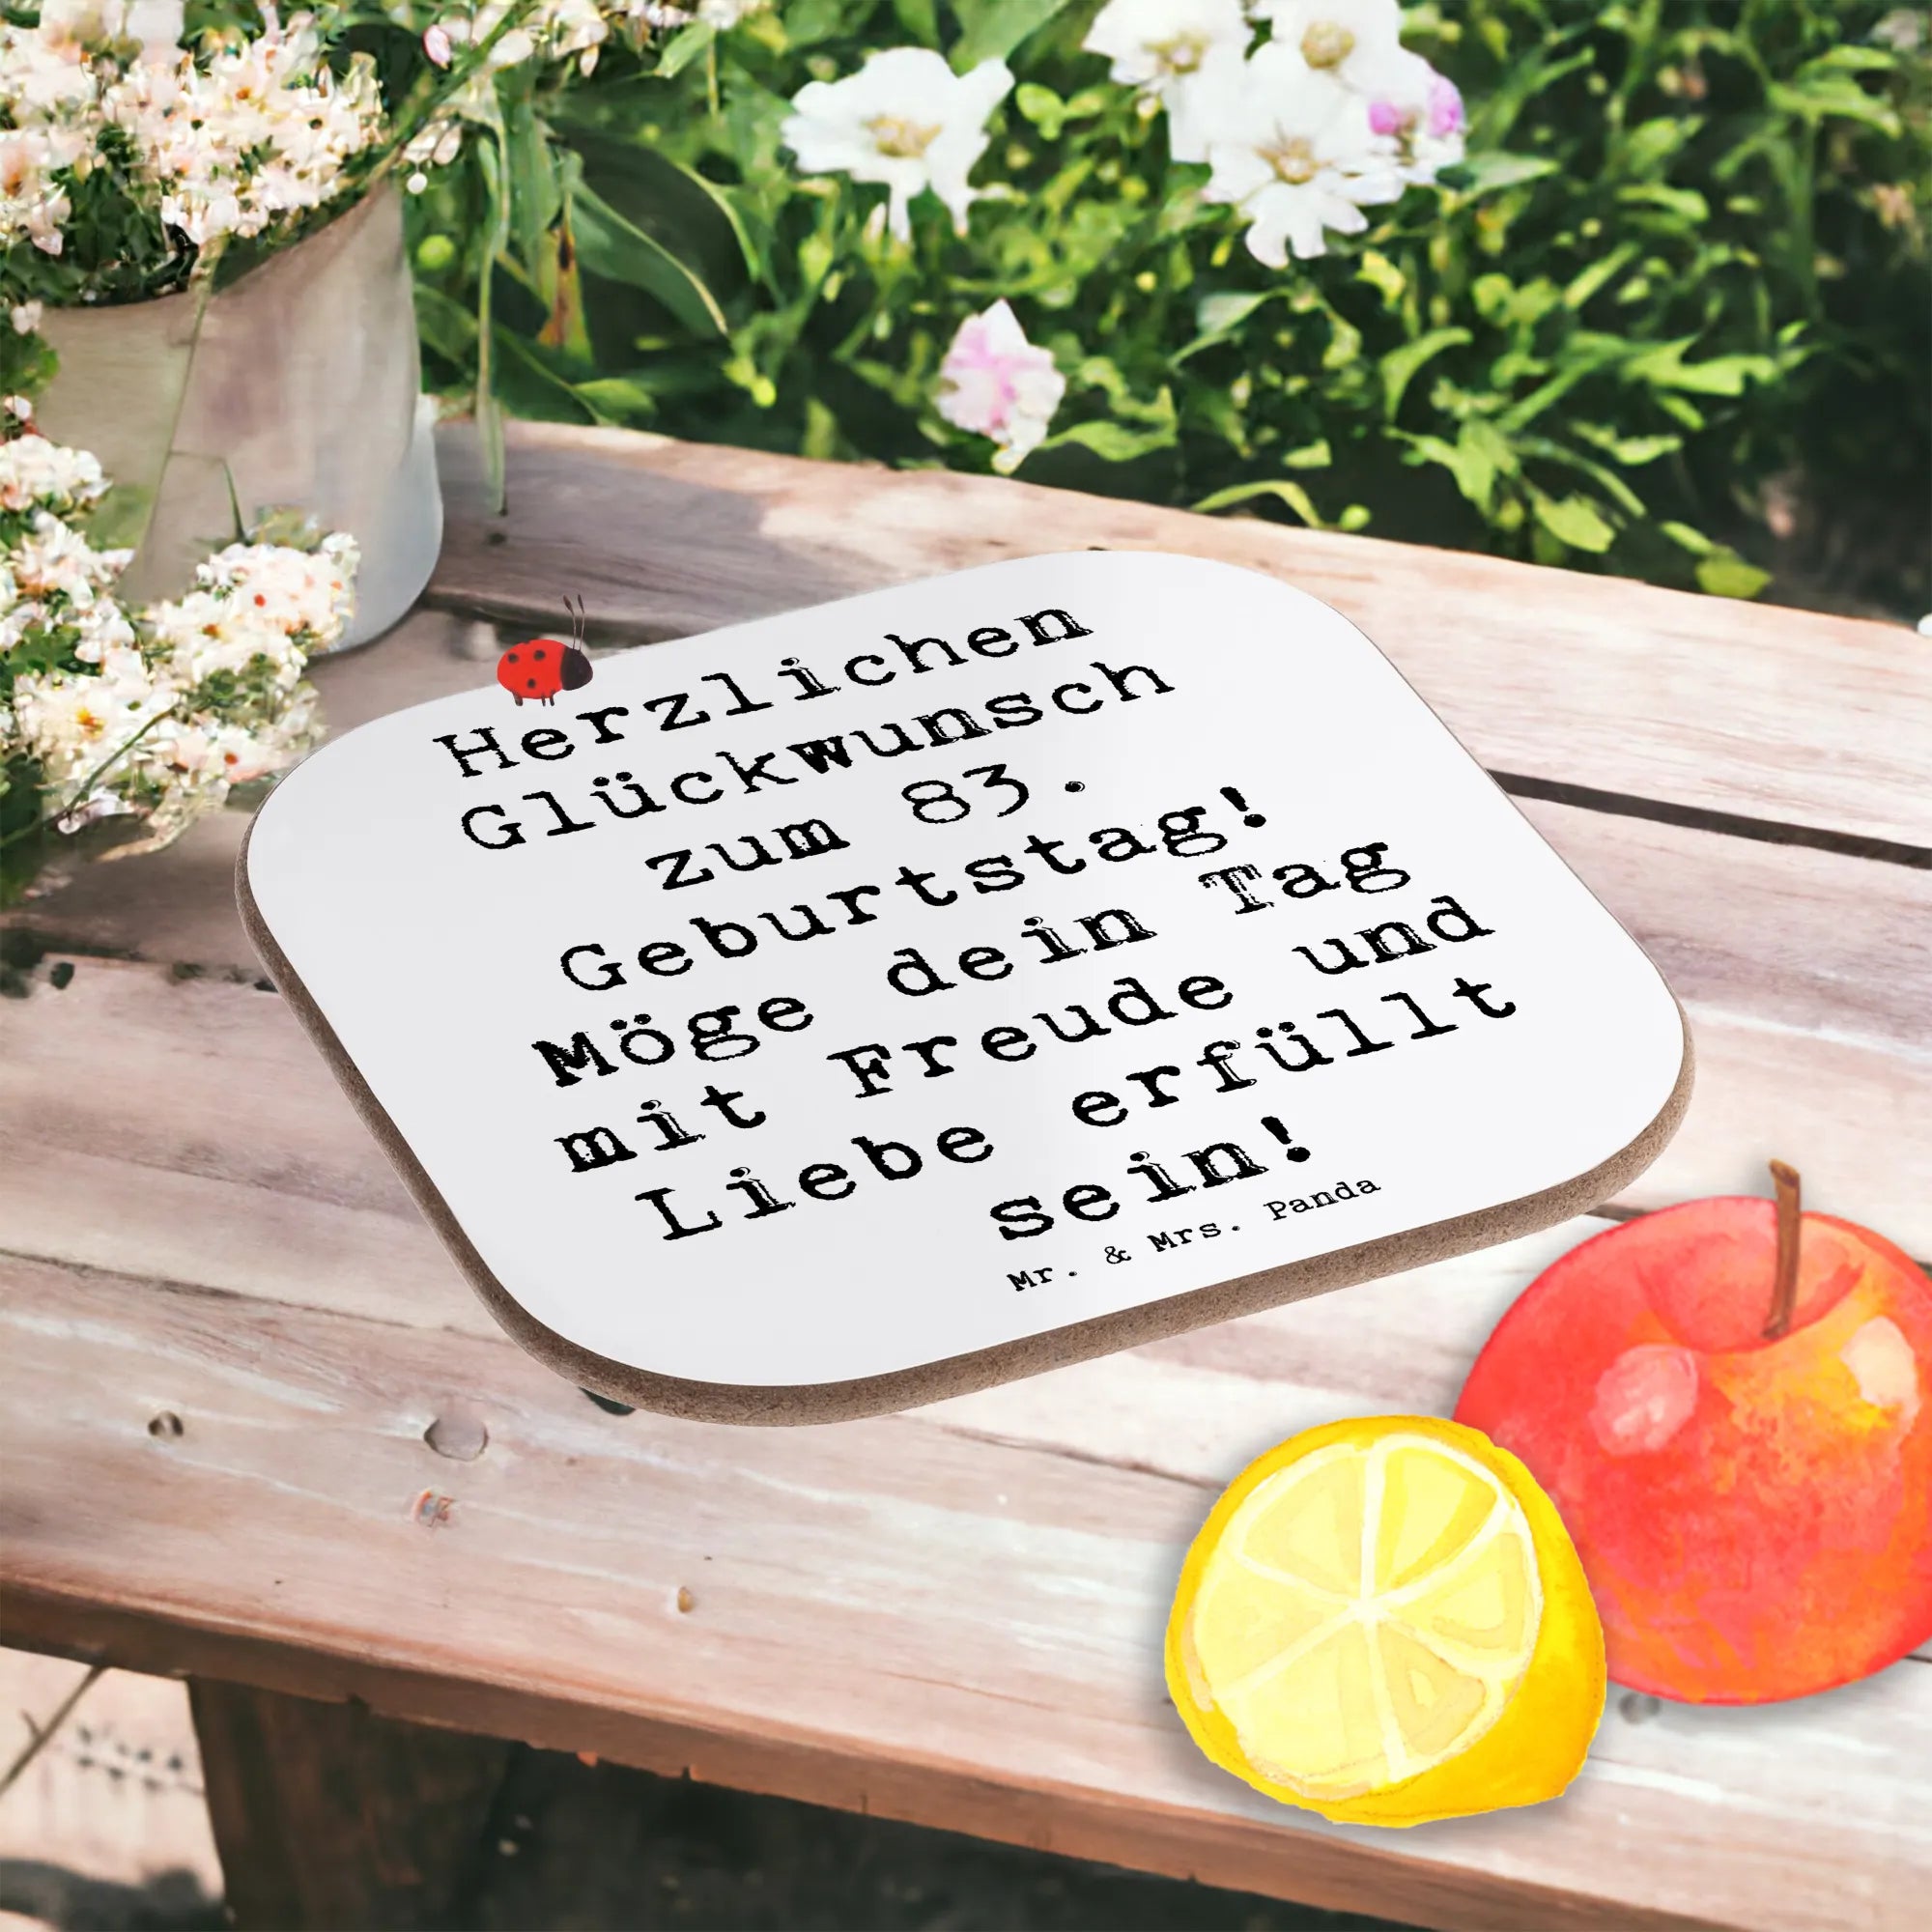 Herzlichen
Glückwunsch
zum 83.
Geburtstag!
Möge dein Tag
mit Freude und
Liebe erfüllt
sein!
Mr. & Mrs. Panda